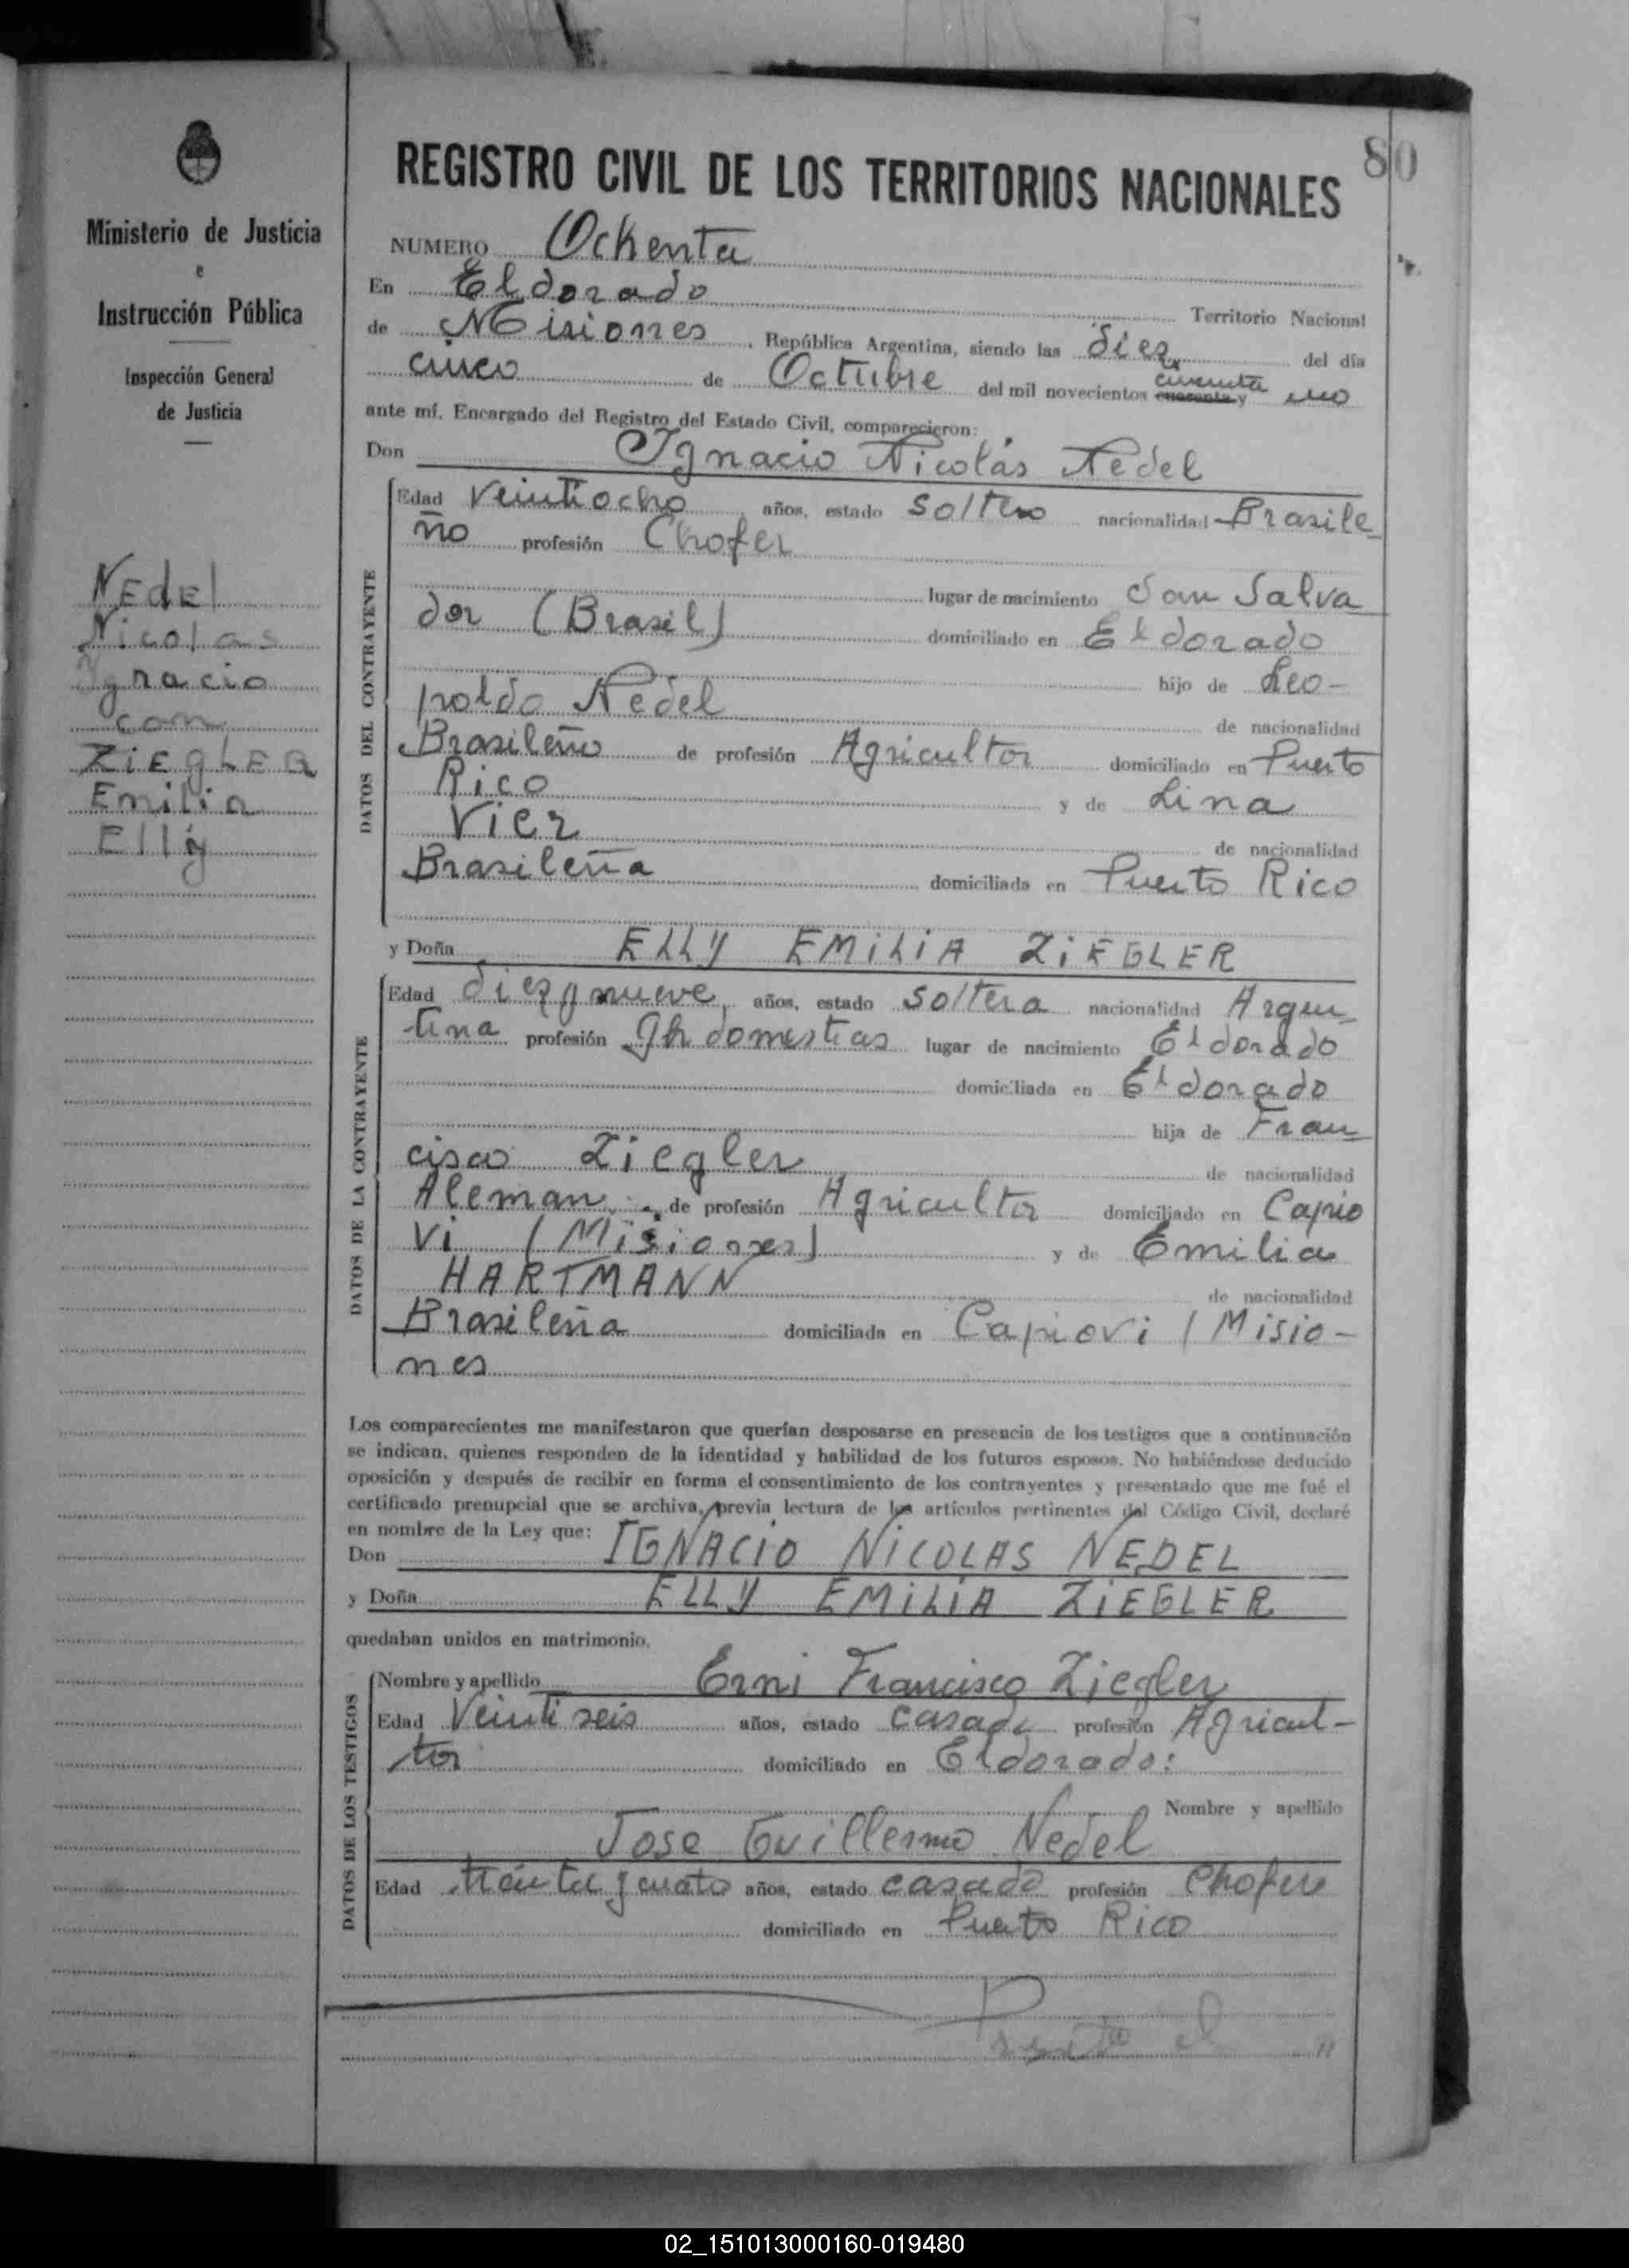 80
Ministerio de Justicia
e
Instrucción Pública
Inspección General
de Justicia
NEdEl
Nicolas
Ygnacio
con
ZiEgLER
Emilia
Elly
REGISTRO CIVIL DE LOS TERRITORIOS NACIONALES
NUMERO Ochenta
En Eldorado Territorio Nacional
de Misiones, República Argentina, siendo las diez del día
cinco de Octubre del mil novecientos cuarenta y cincuenta uno
ante mí. Encargado del Registro del Estado Civil, comparecieron:
Don Ignacio Nicolás Nedel
DATOS DEL CONTRAYENTE
Edad Veintiocho años, estado Soltero nacionalidad Brasile
ño profesión Chofer
lugar de nacimiento San Salva
dor (Brasil) domiciliado en Eldorado
hijo de Leo-
poldo Nedel de nacionalidad
Brasileño de profesión Agricultor domiciliado en Puerto
Rico y de Lina
Vier de nacionalidad
Brasileña domiciliada en Puerto Rico
y Doña ELLY EMiLiA ZiEGLER
DATOS DE LA CONTRAYENTE
Edad diez y nueve años, estado Soltera nacionalidad Argen
tina profesión Qh domesticas lugar de nacimiento Eldorado
domiciliada en Eldorado
hija de Fran
cisco Ziegler de nacionalidad
Aleman de profesión Agricultor domiciliado en Capio
vi (Misiones) y de Emilia
HARTMANN de nacionalidad
Brasileña domiciliada en Capiovi (Misio-
nes
Los comparecientes me manifestaron que querían desposarse en presencia de los testigos que a continuación
se indican, quienes responden de la identidad y habilidad de los futuros esposos. No habiéndose deducido
oposición y después de recibir en forma el consentimiento de los contrayentes y presentado que me fué el
certificado prenupcial que se archiva, previa lectura de los artículos pertinentes del Código Civil, declaré
en nombre de la Ley que:
Don IGNACIO NiCOLAS NEDEL
y Doña ELLY EMiLiA ZiEGLER
quedaban unidos en matrimonio.
DATOS DE LOS TESTIGOS
Nombre y apellido Erni Francisco Ziegler
Edad Veintiseis años, estado casado profesión Agricul-
tor domiciliado en Eldorado:
Nombre y apellido
Jose Guillermo Nedel
Edad treinta y cuatro años, estado casado profesión Chofer
domiciliado en Puerto Rico
02_151013000160-019480